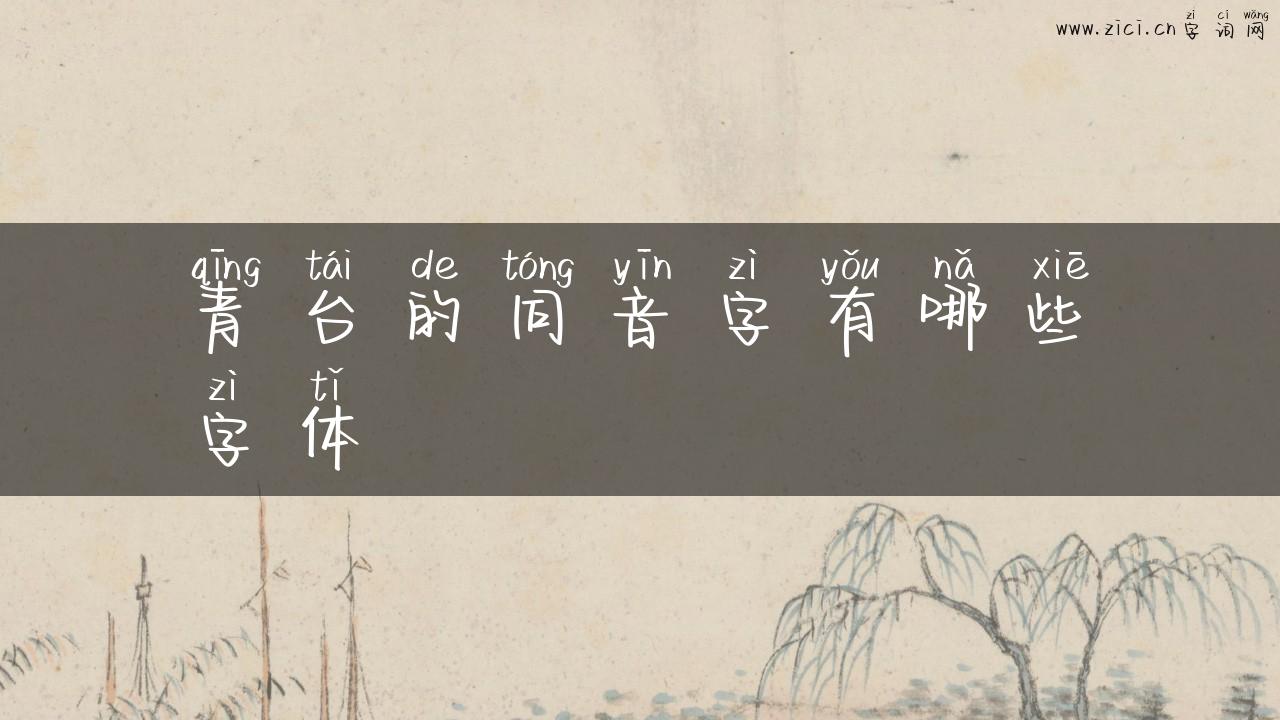 www.zici.cn zì cí wǎng
字词网
qīng tái de tóng yīn zì yǒu nǎ xiē
青台的同音字有哪些
zì tǐ
字体